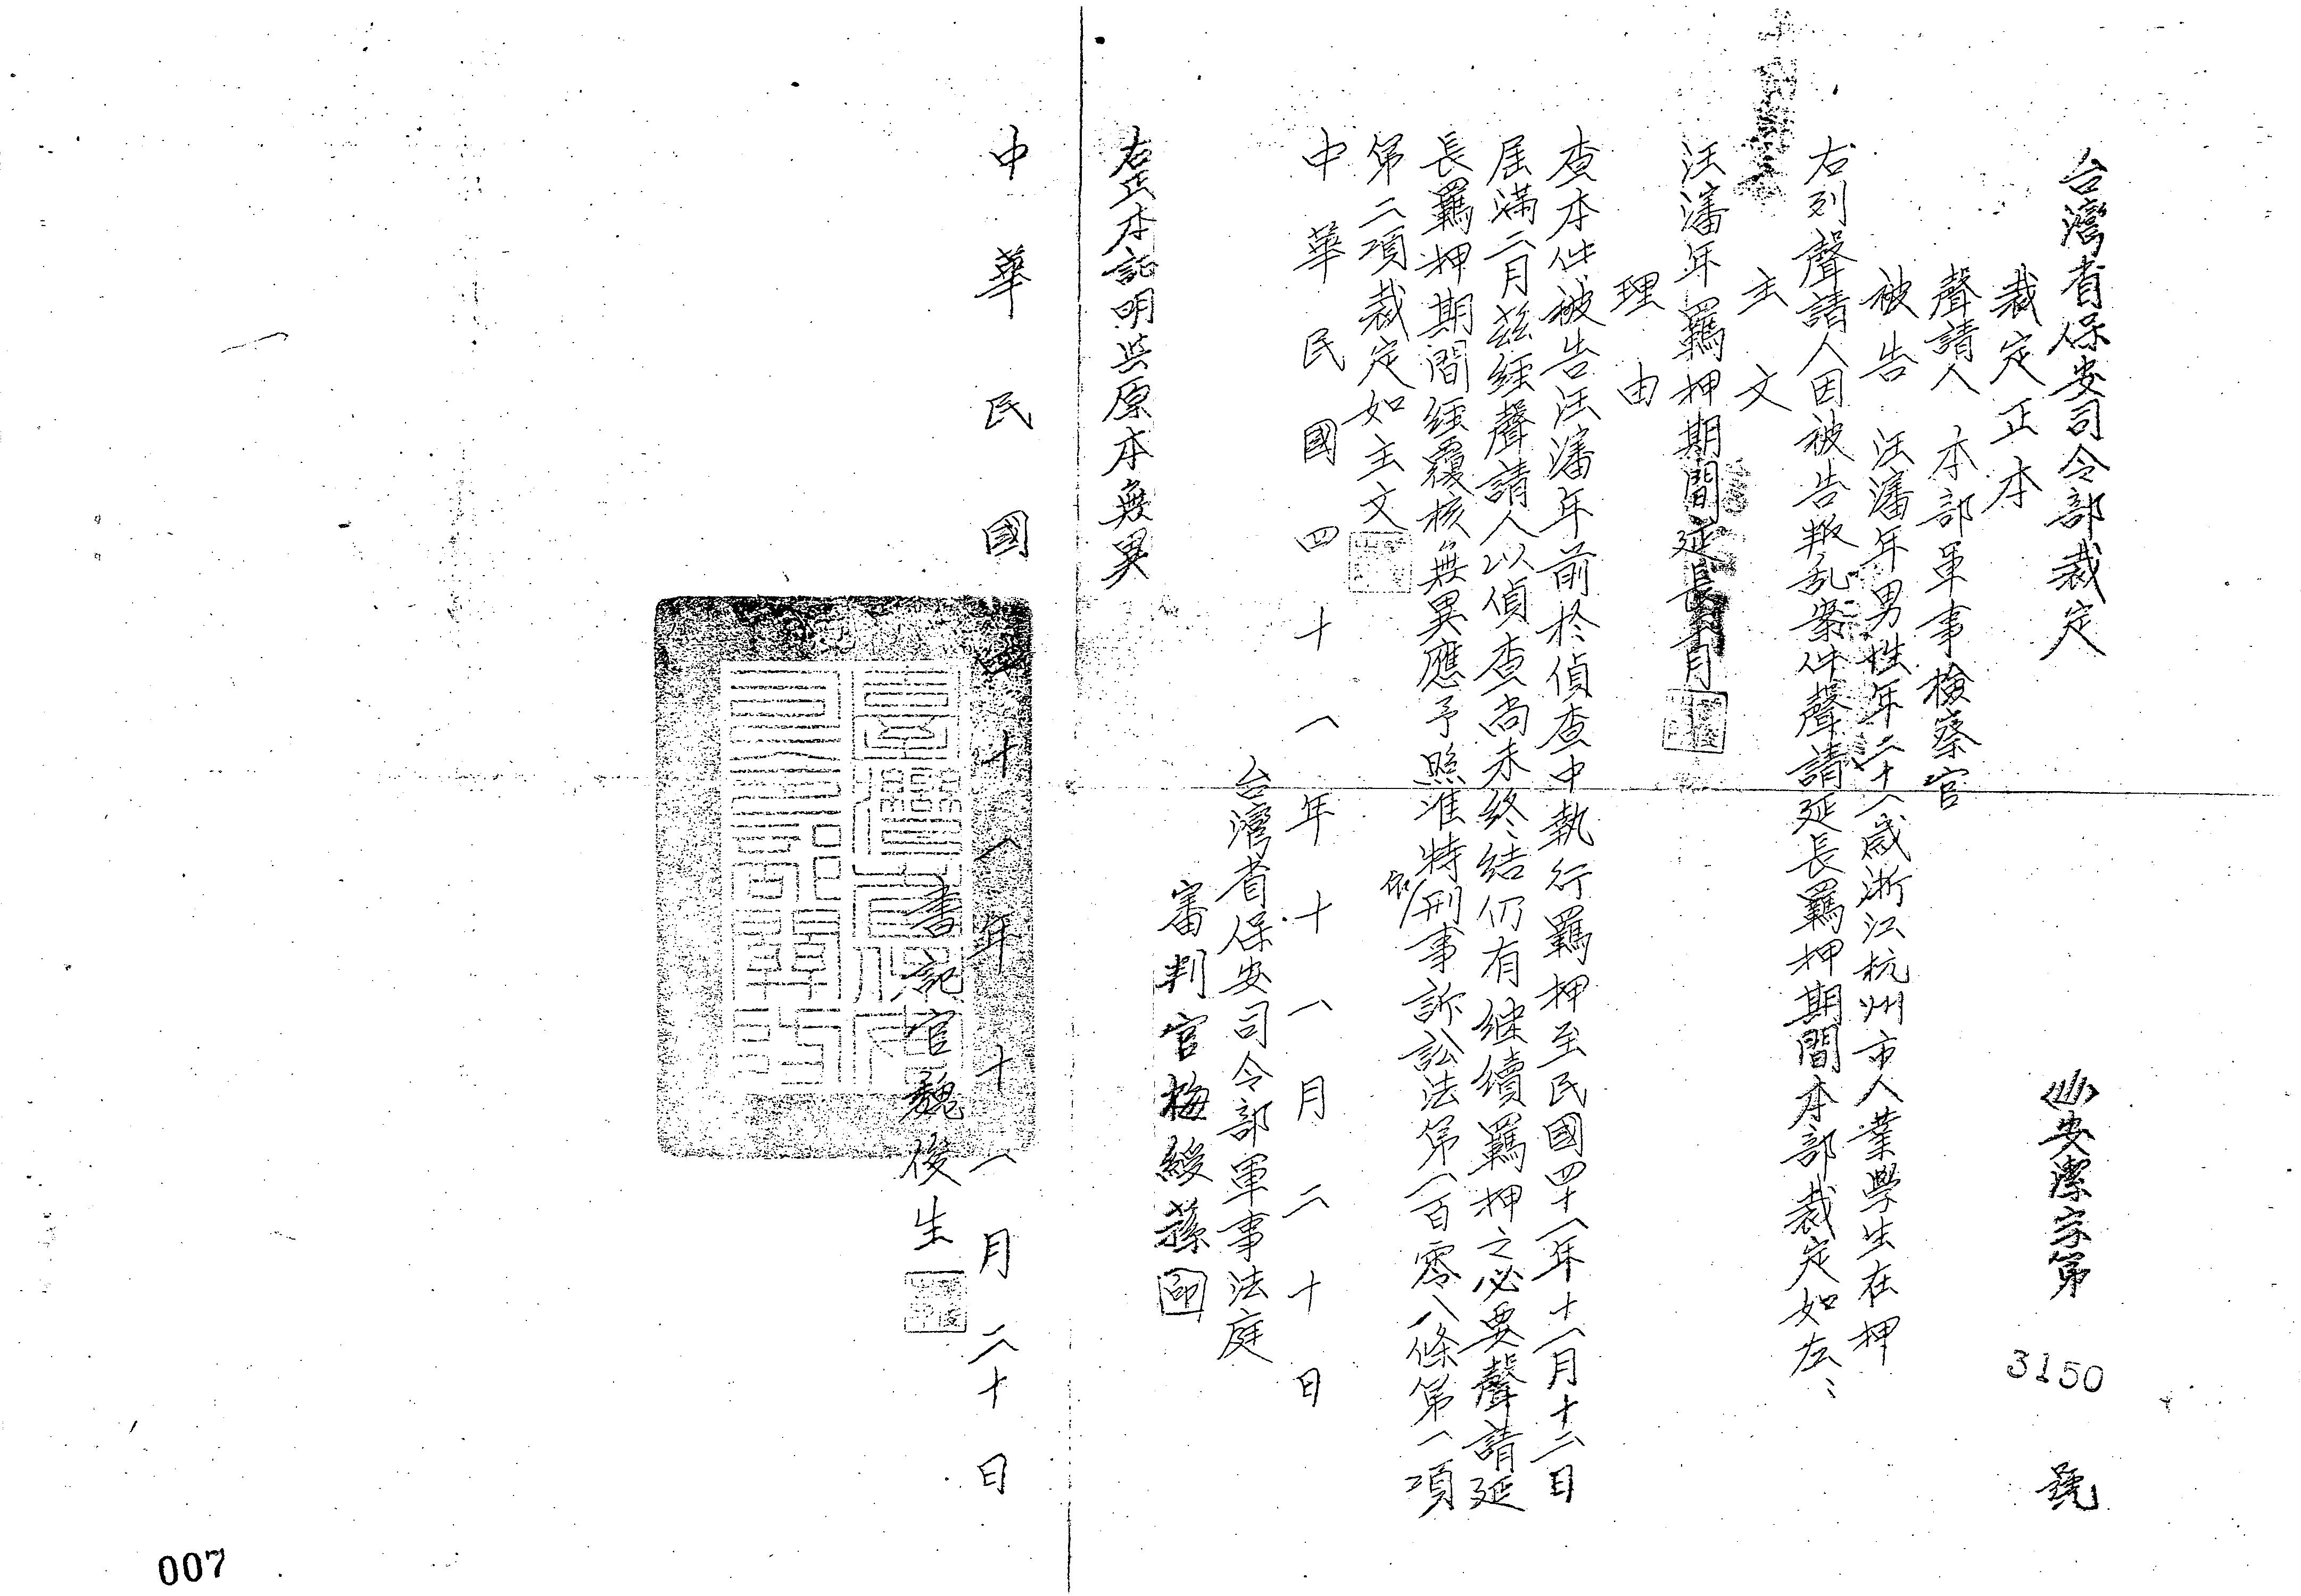 台灣省保安司令部裁定
(41)安潔字第 3150 號
裁定正本
聲請人 本部軍事檢察官
被告 汪瀋年男性年二十一歲浙江杭州市人業學生在押
右列聲請人因被告叛乱案件聲請延長羈押期間本部裁定如左：
主文
汪瀋年羈押期間延長月
理由
查本件被告汪瀋年前於偵查中執行羈押至民國四十一年十一月十二日
屆滿二月茲經聲請人以偵查尚未終結仍有継續羈押之必要聲請延
長羈押期間經覆核無異應予照准特依刑事訴訟法第一百零八條第一項
第二項裁定如主文
中華民國四十一年十一月二十日
台灣省保安司令部軍事法庭
審判官梅綬蓀 印
右正本証明与原本無異
中華民國四十一年十一月二十日
書記官魏俊生
007